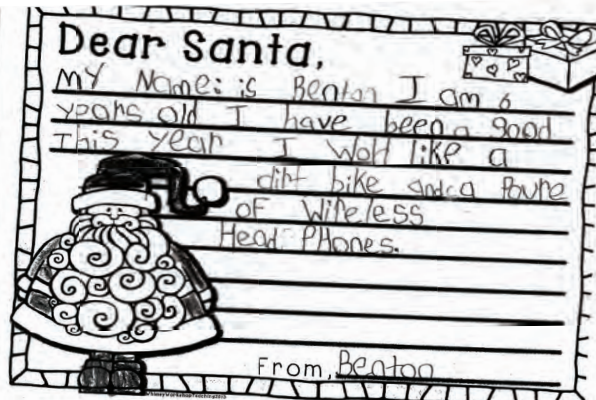 Dear Santa,
MY Name: is Benton I am 6
years old I have been a good
This year I wolt like a
dirt bike and a Poure
of Wireless
Head PHones.
From, Benton